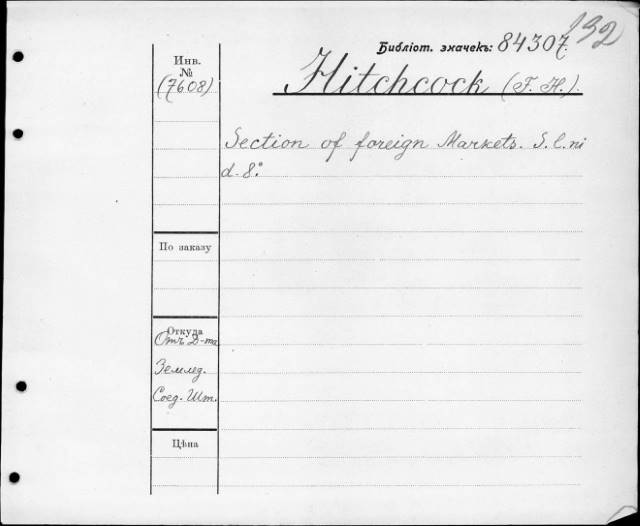 132
Библіот. значекъ: 84307
Инв.
№
(7608)
Hitchcock (F. H.).
Section of foreign Markets. S. l. ni
d. 8°.
По заказу
Откуда
Отъ Д-та
Землед.
Соед. Шт.
Цѣна